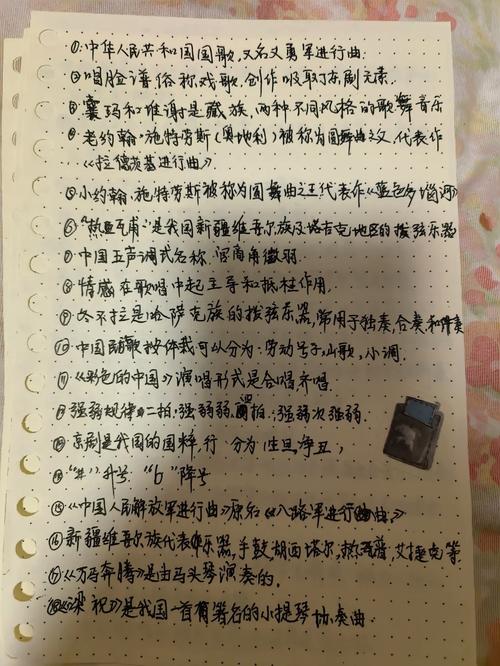 ①:中华人民共和国国歌,又名义勇军进行曲.
②唱脸谱俗称戏歌,创作吸取了京剧元素.
③囊玛和堆谢是藏族,两种不同风格的歌舞音乐
④老约翰·施特劳斯(奥地利)被称为圆舞曲之父,代表作
《拉德茨基进行曲》
⑤小约翰·施特劳斯被称为圆舞曲之王代表作《蓝色多瑙河》
⑥"热瓦甫"是我国新疆维吾尔族及塔吉克地区的拨弦乐器
⑦中国五声调式名称.宫商角徵羽.
⑧情感在歌唱中起主导和抵柱作用.
⑨冬不拉是哈萨克族的拨弦乐器,常用于独奏,合奏和伴奏
⑩中国民歌按体裁可以分为:劳动号子,山歌,小调.
⑪《彩色的中国》演唱形式是合唱齐唱.
⑫强弱规律》二拍:强弱弱,四拍:强弱次强弱.
⑬京剧是我国的国粹,行分为生旦净丑;
⑭"#"升号."b"降号
⑮《中国人民解放军进行曲》原名《八路军进行曲.》
⑯新疆维吾尔族代表乐器,手鼓,胡西塔尔,热瓦普,艾捷克等.
⑰《万马奔腾》是由马头琴演奏的.
⑱《梁祝》是我国一首有著名的小提琴协奏曲.